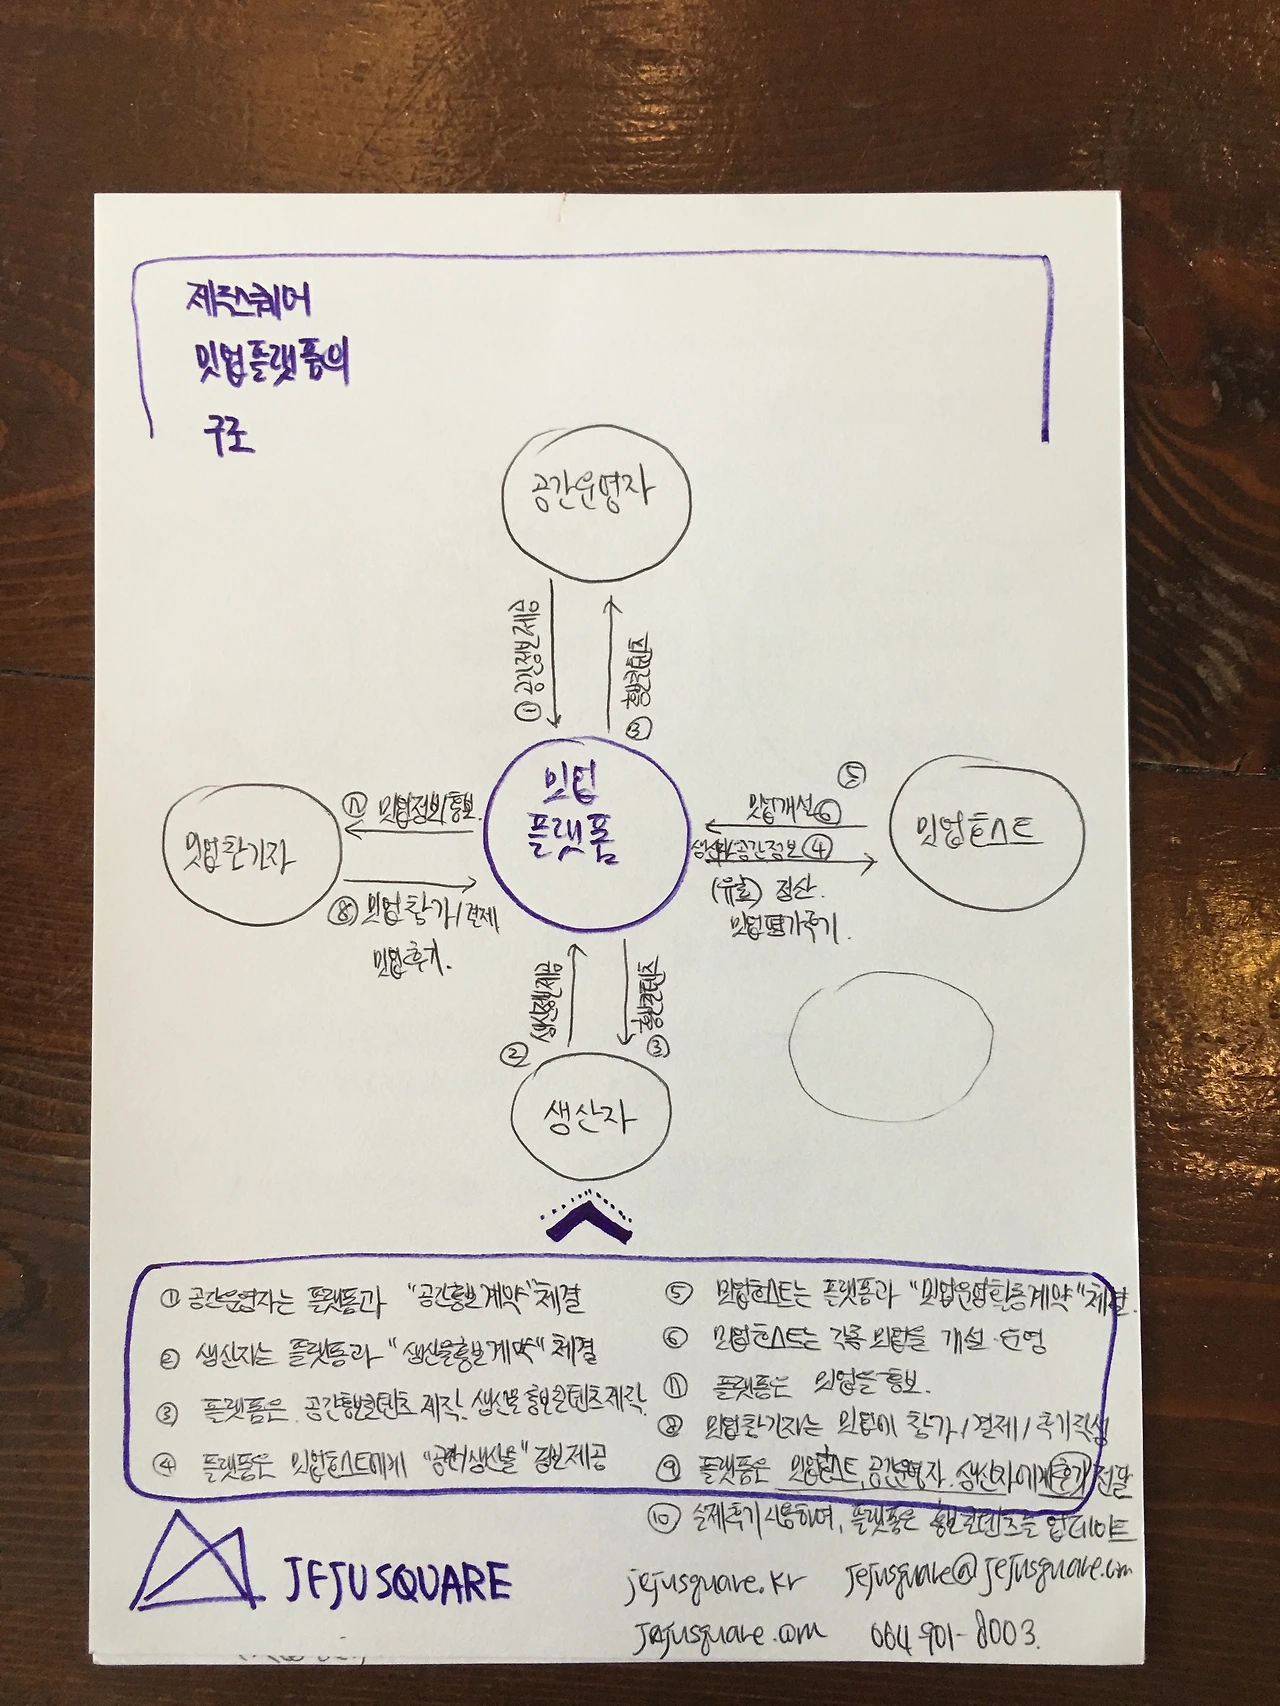 제주스퀘어
밋업플랫폼의
구조
공간운영자
① 공간정보제공
③ 홍보콘텐츠
밋업
플랫폼
밋업참가자
⑦ 밋업정보/홍보
⑧ 밋업참가/결제
밋업후기.
⑤
밋업개설⑥
생산자/공간정보④
(유료) 정산.
밋업평가후기.
밋업호스트
② 생산정보제공
③ 홍보콘텐츠
생산자
① 공간운영자는 플랫폼과 "공간홍보계약"체결
② 생산자는 플랫폼과 "생산물홍보계약" 체결
③ 플랫폼은 공간홍보콘텐츠 제작. 생산물 홍보콘텐츠제작.
④ 플랫폼은 밋업호스트에게 "공간/생산물" 정보제공
⑤ 밋업호스트는 플랫폼과 체결.
⑥ 밋업호스트는 각종 밋업을 개설·운영
⑦ 플랫폼은 밋업을 홍보.
⑧ 밋업참가자는 밋업에 참가/결제/후기작성
⑨ 플랫폼은 밋업호스트, 공간운영자, 생산자에게 후기 전달
⑩ 실제후기 사용하여, 플랫폼은 홍보콘텐츠를 업데이트
JEJUSQUARE
jejusquare.kr
jejusquare@jejusquare.com
jejusquare.com
064 901-8003.